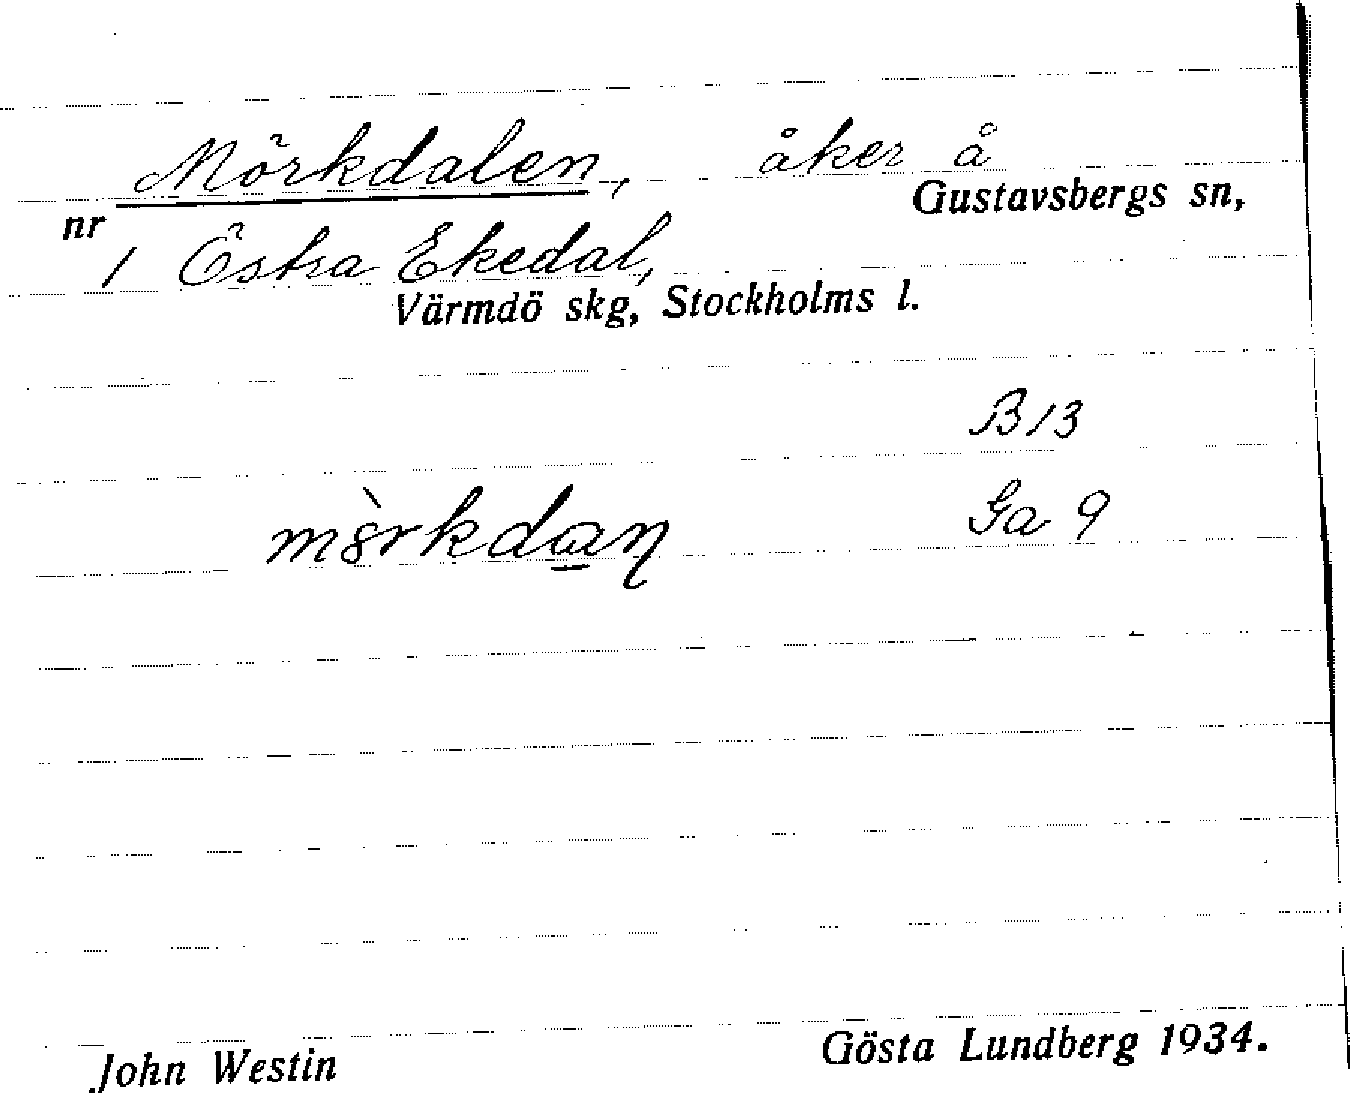 Mörkdalen, åker å
Gustavsbergs sn,
nr
1 Östra Ekedal,
Värmdö skg, Stockholms l.
B 13
Ga 9
John Westin
Gösta Lundberg 1934.